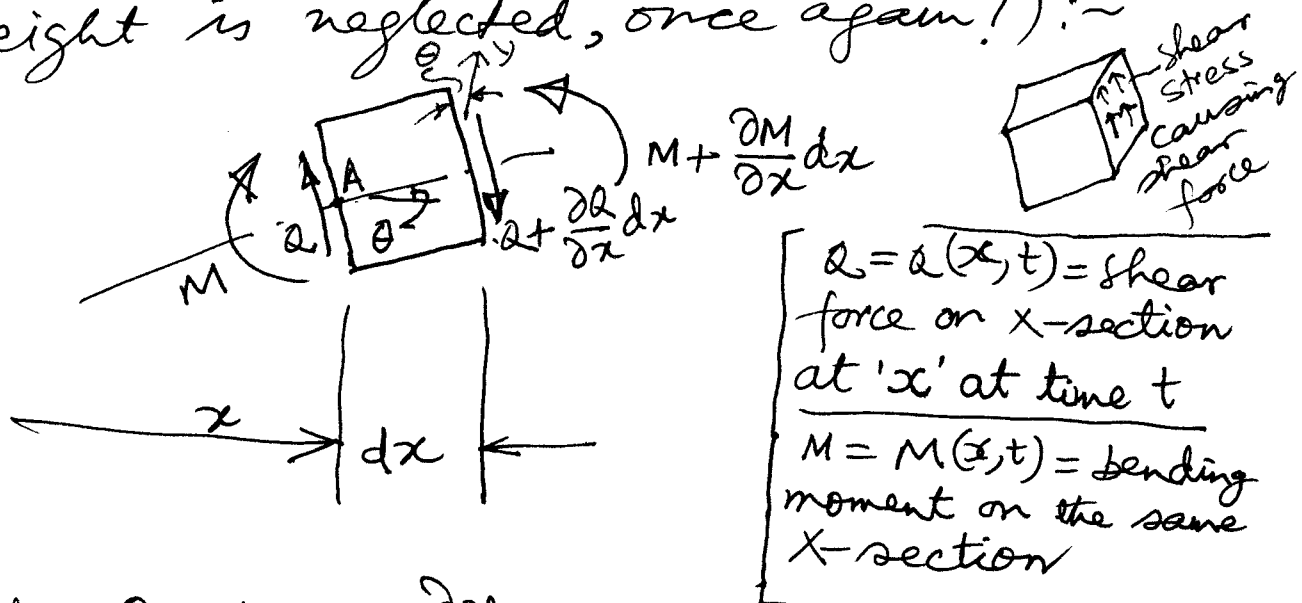 eight is neglected, once again!):~
θ
y
shear
stress
causing
shear
force
M + ∂M/∂x dx
A
Q
θ
Q + ∂Q/∂x dx
M
x
dx
Q = Q(x,t) = shear
force on X-section
at 'x' at time t
M = M(x,t) = bending
moment on the same
X-section